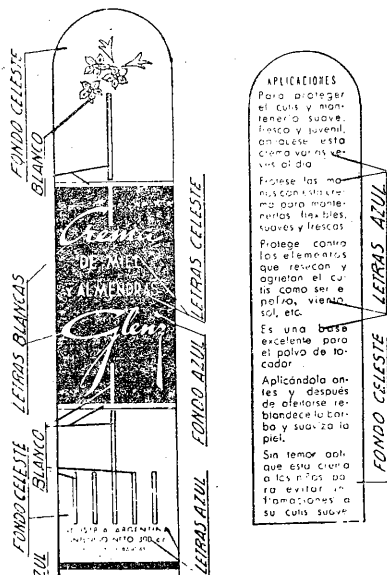 FONDO CELESTE
BLANCO
LETRAS BLANCAS
BLANCO
FONDO CELESTE
AZUL
Crema
DE MIEL Y
ALMENDRAS
Glenz
INDUSTRIA ARGENTINA
CONTENIDO NETO
LETRAS CELESTE
FONDO AZUL
LETRAS AZUL
APLICACIONES
Para proteger
el cutis y man-
tenerlo suave,
fresco y juvenil,
aplíquese esta
crema varias ve-
ces al día
Frótese las ma-
nos con esta cre-
ma para mante-
nerlas flexibles,
suaves y frescas
Protege contra
los elementos
que resecan y
agrietan el cu-
tis como ser el
polvo, viento,
sol, etc.
Es una base
excelente para
el polvo de to-
cador
Aplicándola an-
tes y después
de afeitarse re-
blandece la bar-
ba y suaviza la
piel.
Sin temor apli-
que esta crema
a los niños pa-
ra evitar in-
flamaciones a
su cutis suave
LETRAS AZUL
FONDO CELESTE